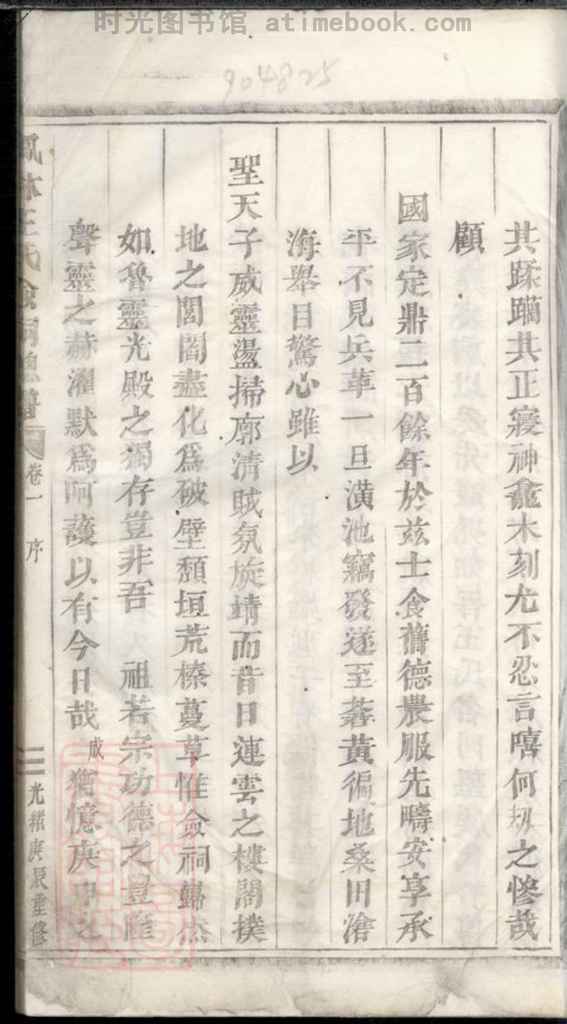 时光图书馆 atimebook.com
904825
共蹂躪其正寢神龕木刻尤不忍言嘻何刼之慘哉
顧
國家定鼎二百餘年於兹士食舊德農服先疇安享承
平不見兵革一旦潢池竊發遂至蒼黃徧地桑田滄
海舉目驚心雖以
聖天子威靈盪掃廓清賊氛旋靖而昔日連雲之樓閣撲
地之閭閻盡化爲破壁頹垣荒榛蔓草惟僉祠巋然
如魯靈光殿之獨存豈非吾 祖若宗功德之豐隆
聲靈之赫濯默爲呵護以有今日哉成衡憶庚申之
鳳林王氏僉祠總譜 卷一 序 三 光緒庚辰重修